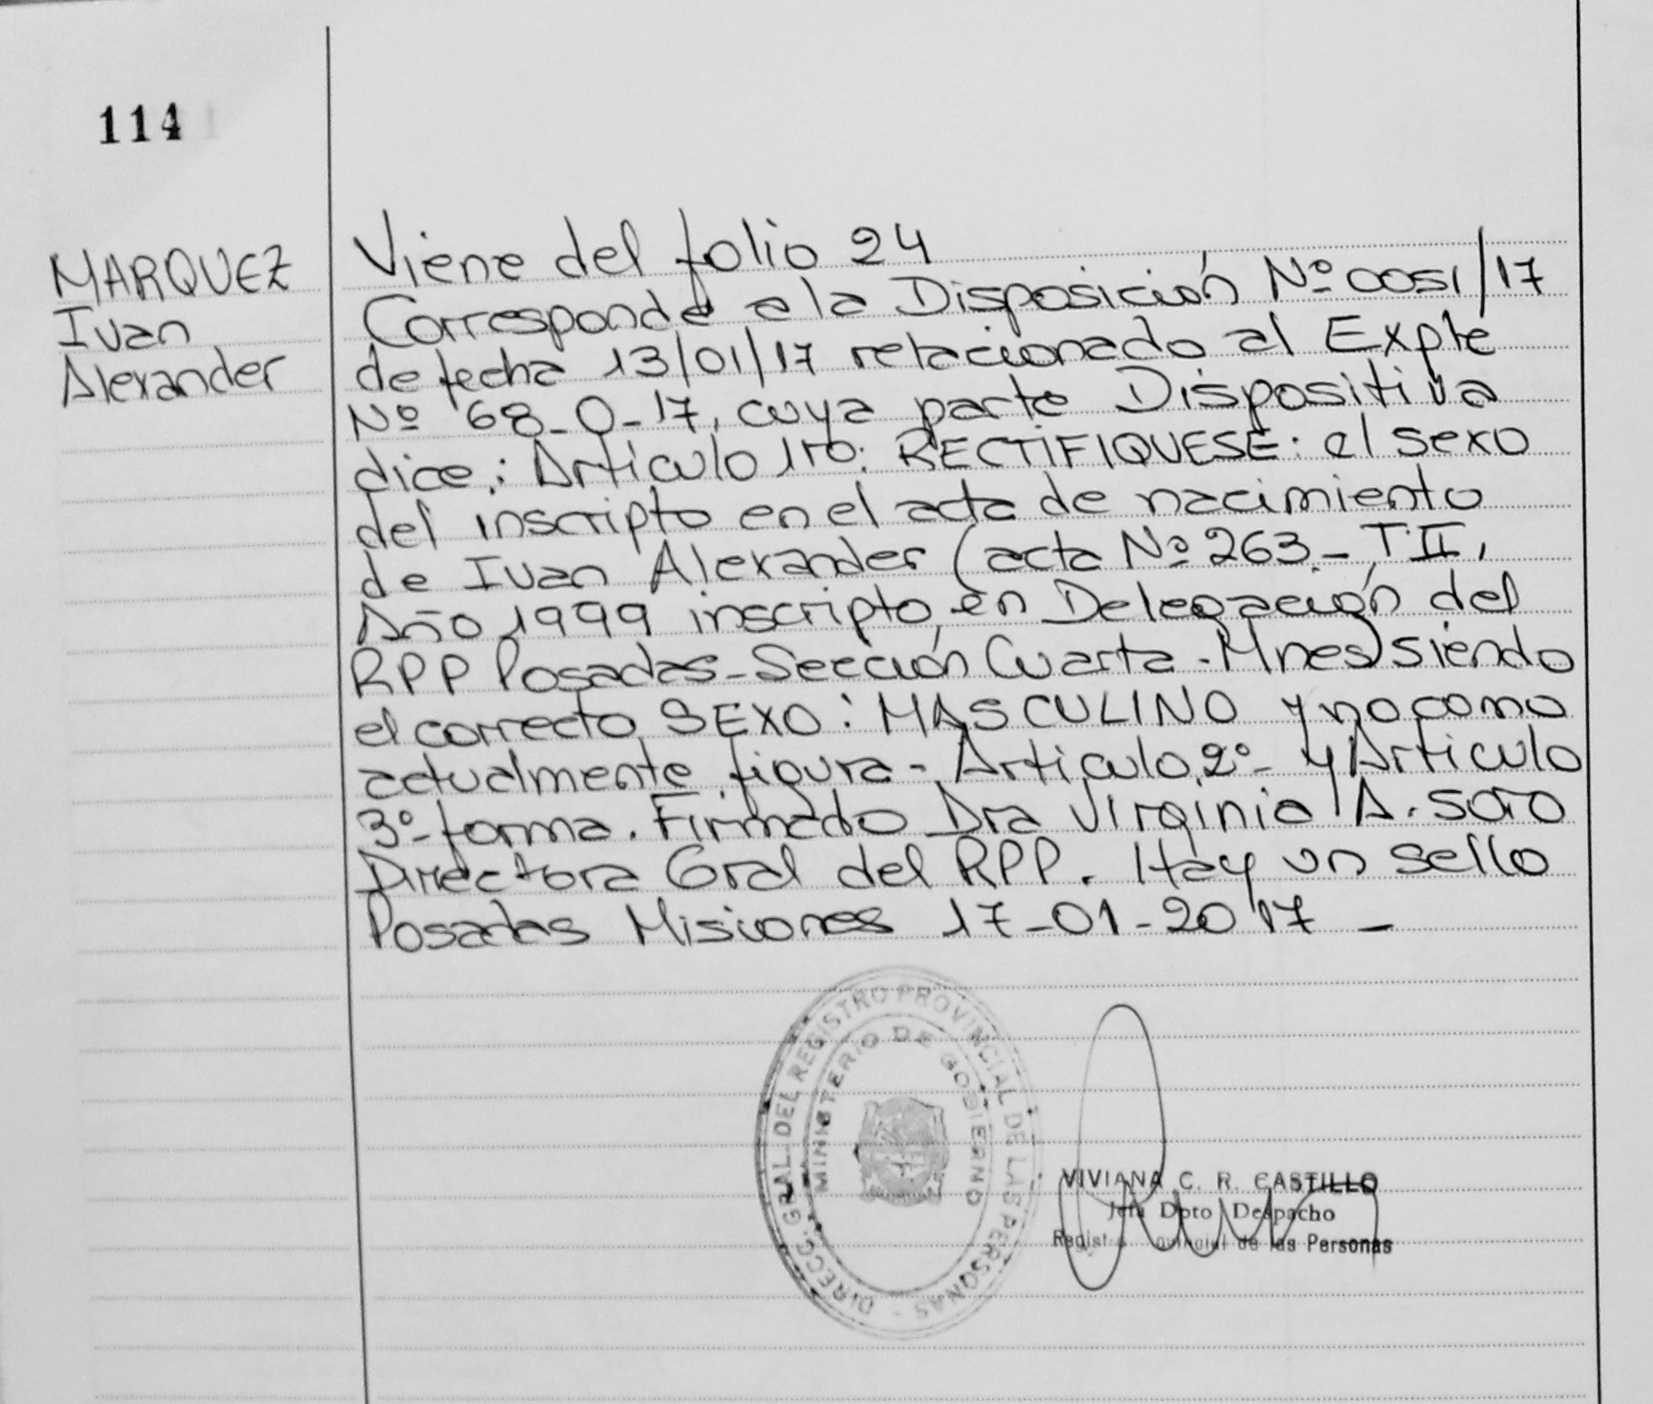 114
MARQUEZ
Ivan
Alexander
Viene del folio 24
Corresponde a la Disposición Nº 0051/17
de fecha 13/01/17 relacionado al Expte
Nº 68-O-17, cuya parte Dispositiva
dice: Artículo 1ro: RECTIFIQUESE: el sexo
del inscripto en el acta de nacimiento
de Ivan Alexander (acta Nº 263 - T.II,
Año 1999 inscripto en Delegación del
RPP Posadas - Sección Cuarta - Mnes) siendo
el correcto SEXO: MASCULINO y no como
actualmente figura - Articulo 2º - y Articulo
3º - forma. Firmado Dra Virginia A. Soto
Directora Gral del RPP. Hay un sello
Posadas Misiones 17-01-2017 -
DIRECC. GRAL. DEL REGISTRO PROVINCIAL DE LAS PERSONAS -
MINISTERIO DE GOBIERNO
VIVIANA C. R. CASTILLO
Jefa Dpto Despacho
de las Personas